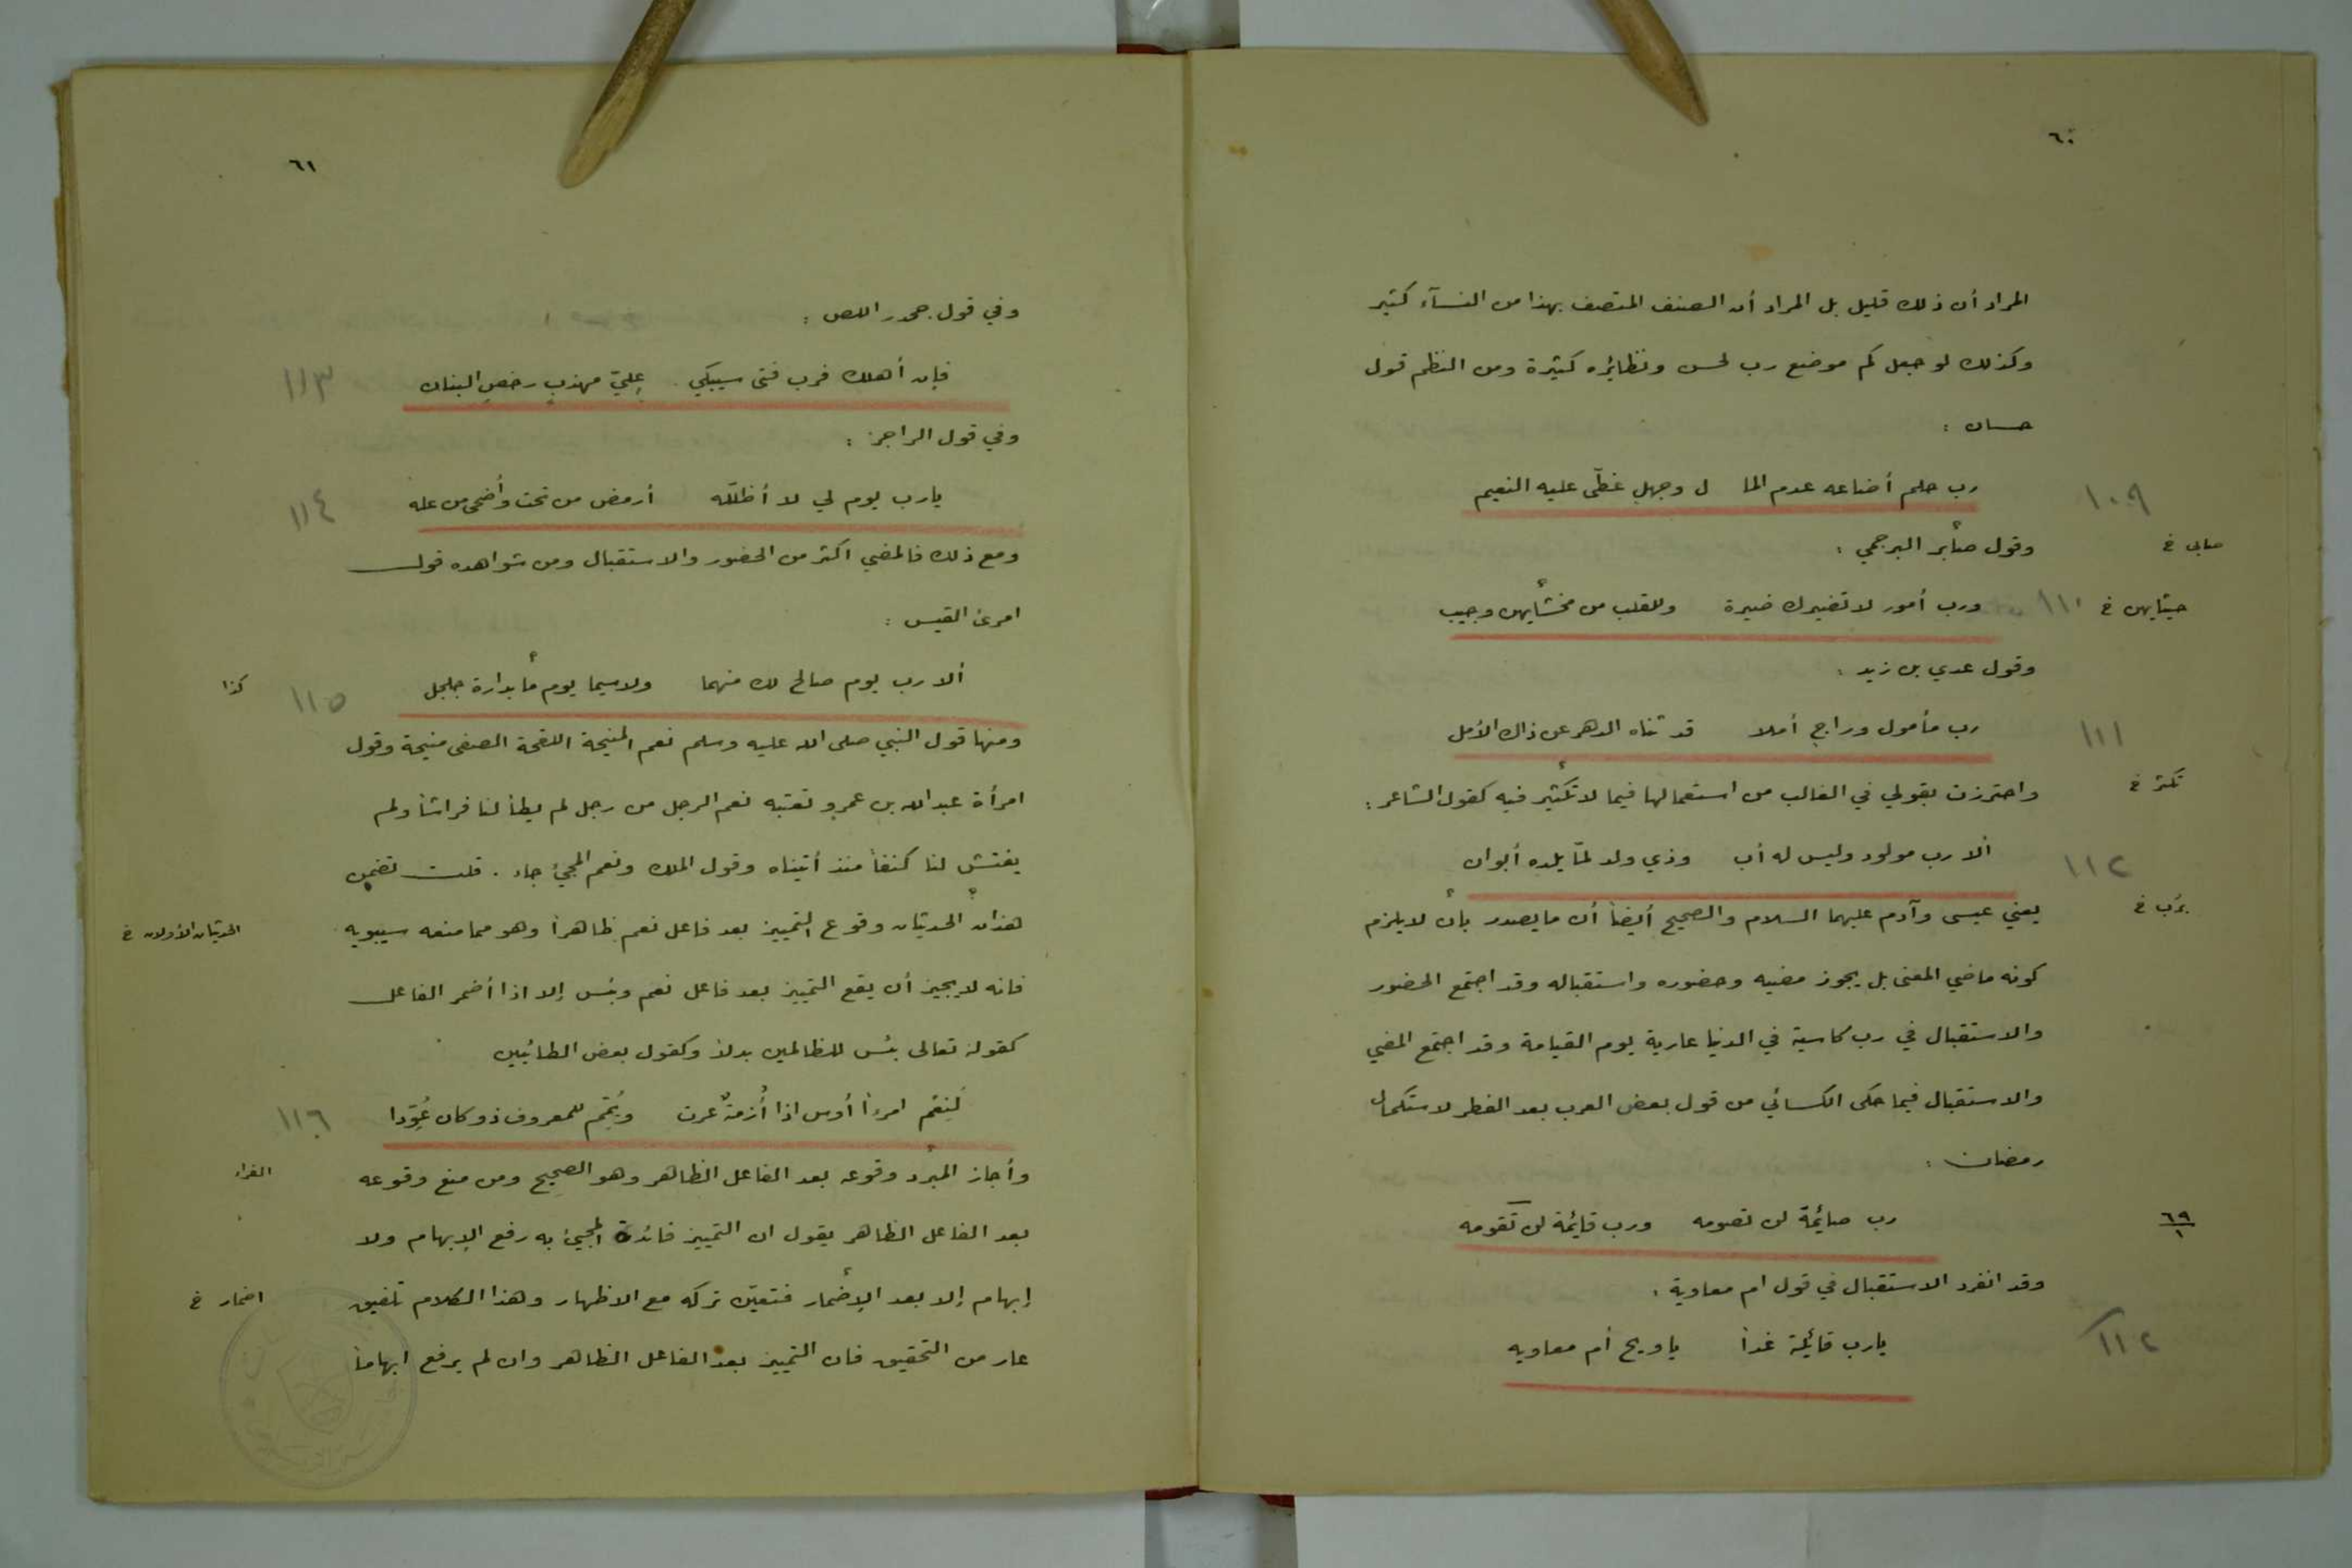 ٦٠
المراد أن ذلك قليل بل المراد أن الصنف المتصف بهذا من النسآء كثير
وكذلك لو جعل كم موضع رب لحسن ونظايره كثيرة ومن النظم قول
حسان :
رب حلم أضاعه عدم الما ل وجهل غطّى عليه النعيم ١٠٩
وقول صابر البرجمي : صابى خ
ورب أمور لا تضيرك ضيرة وللقلب من مخشايهن وجيب ١١٠ خ
وقول عدي بن زيد :
رب مأمول وراج أملا قد ثناه الدهر عن ذاك الأمل ١١١
واحترزت بقولي في الغالب من استعمالها فيما لا تكثير فيه كقول الشاعر : تكثر خ
ألا رب مولود وليس له أب وذي ولد لمّا يلده أبوان ١١٢
يعني عيسى وآدم عليهما السلام والصحيح أيضا أن ما يصدر بأن لا يلزم برُب خ
كونه ماضي المعنى بل يجوز مضيه وحضوره واستقباله وقد اجتمع الحضور
والاستقبال في رب كاسية في الدنيا عارية يوم القيامة وقد اجتمع المضي
والاستقبال فيما حكى الكسائي من قول بعض العرب بعد الفطر لاستكمال
رمضان :
رب صائمة لن تصومه ورب قايمة لن تقومه ٦٩/١
وقد انفرد الاستقبال في قول ام معاوية :
يارب قايلة غداً ياويح أم معاويه ١١٢
٦١
وفي قول جحدر اللص :
فإن أهلك فرب فتى سيبكي عليّ مهذبٍ رخص البنان ١١٣
وفي قول الراجز :
يارب يوم لي لا أظلّله أرمض من تحت وأضحى من عله ١١٤
ومع ذلك فالمضي اكثر من الحضور والاستقبال ومن شواهده قول
امرئ القيس :
ألا رب يوم صالح لك منهما ولاسيما يوم ما بدارة جلجل ١١٥ كذا
ومنها قول النبي صلى الله عليه وسلم نعم المنيحة اللقحة الصفى منيحة وقول
امرأة عبد الله بن عمرو تعتبه نعم الرجل من رجل لم يطأ لنا فراشاً ولم
يفتش لنا كنفاً منذ أتيناه وقول الملك ونعم المجيئ جاء . قلت تضمن
هذان الحديثان وقوع التمييز بعد فاعل نعم ظاهراً وهو مما منعه سيبويه الحديثان الأولان خ
فانه لا يجيز أن يقع التمييز بعد فاعل نعم وبئس إلا اذا أضمر الفاعل
كقوله تعالى بئس للظالمين بدلاً وكقول بعض الطائيين
لَنِعْم امرءاً أوس اذا أزمةٌ عرت ويُمّم للمعروف ذو كان عُوّدا ١١٦
وأجاز المبرد وقوعه بعد الفاعل الظاهر وهو الصحيح ومن منع وقوعه الفراء
بعد الفاعل الظاهر يقول ان التمييز فائدة المجيئ به رفع الإبهام ولا
إبهام إلا بعد الإضمار فتعيّن تركه مع الاظهار وهذا الكلام تلفيق اضمار خ
عار من التحقيق فان التمييز بعد الفاعل الظاهر وان لم يرفع ابهاماً